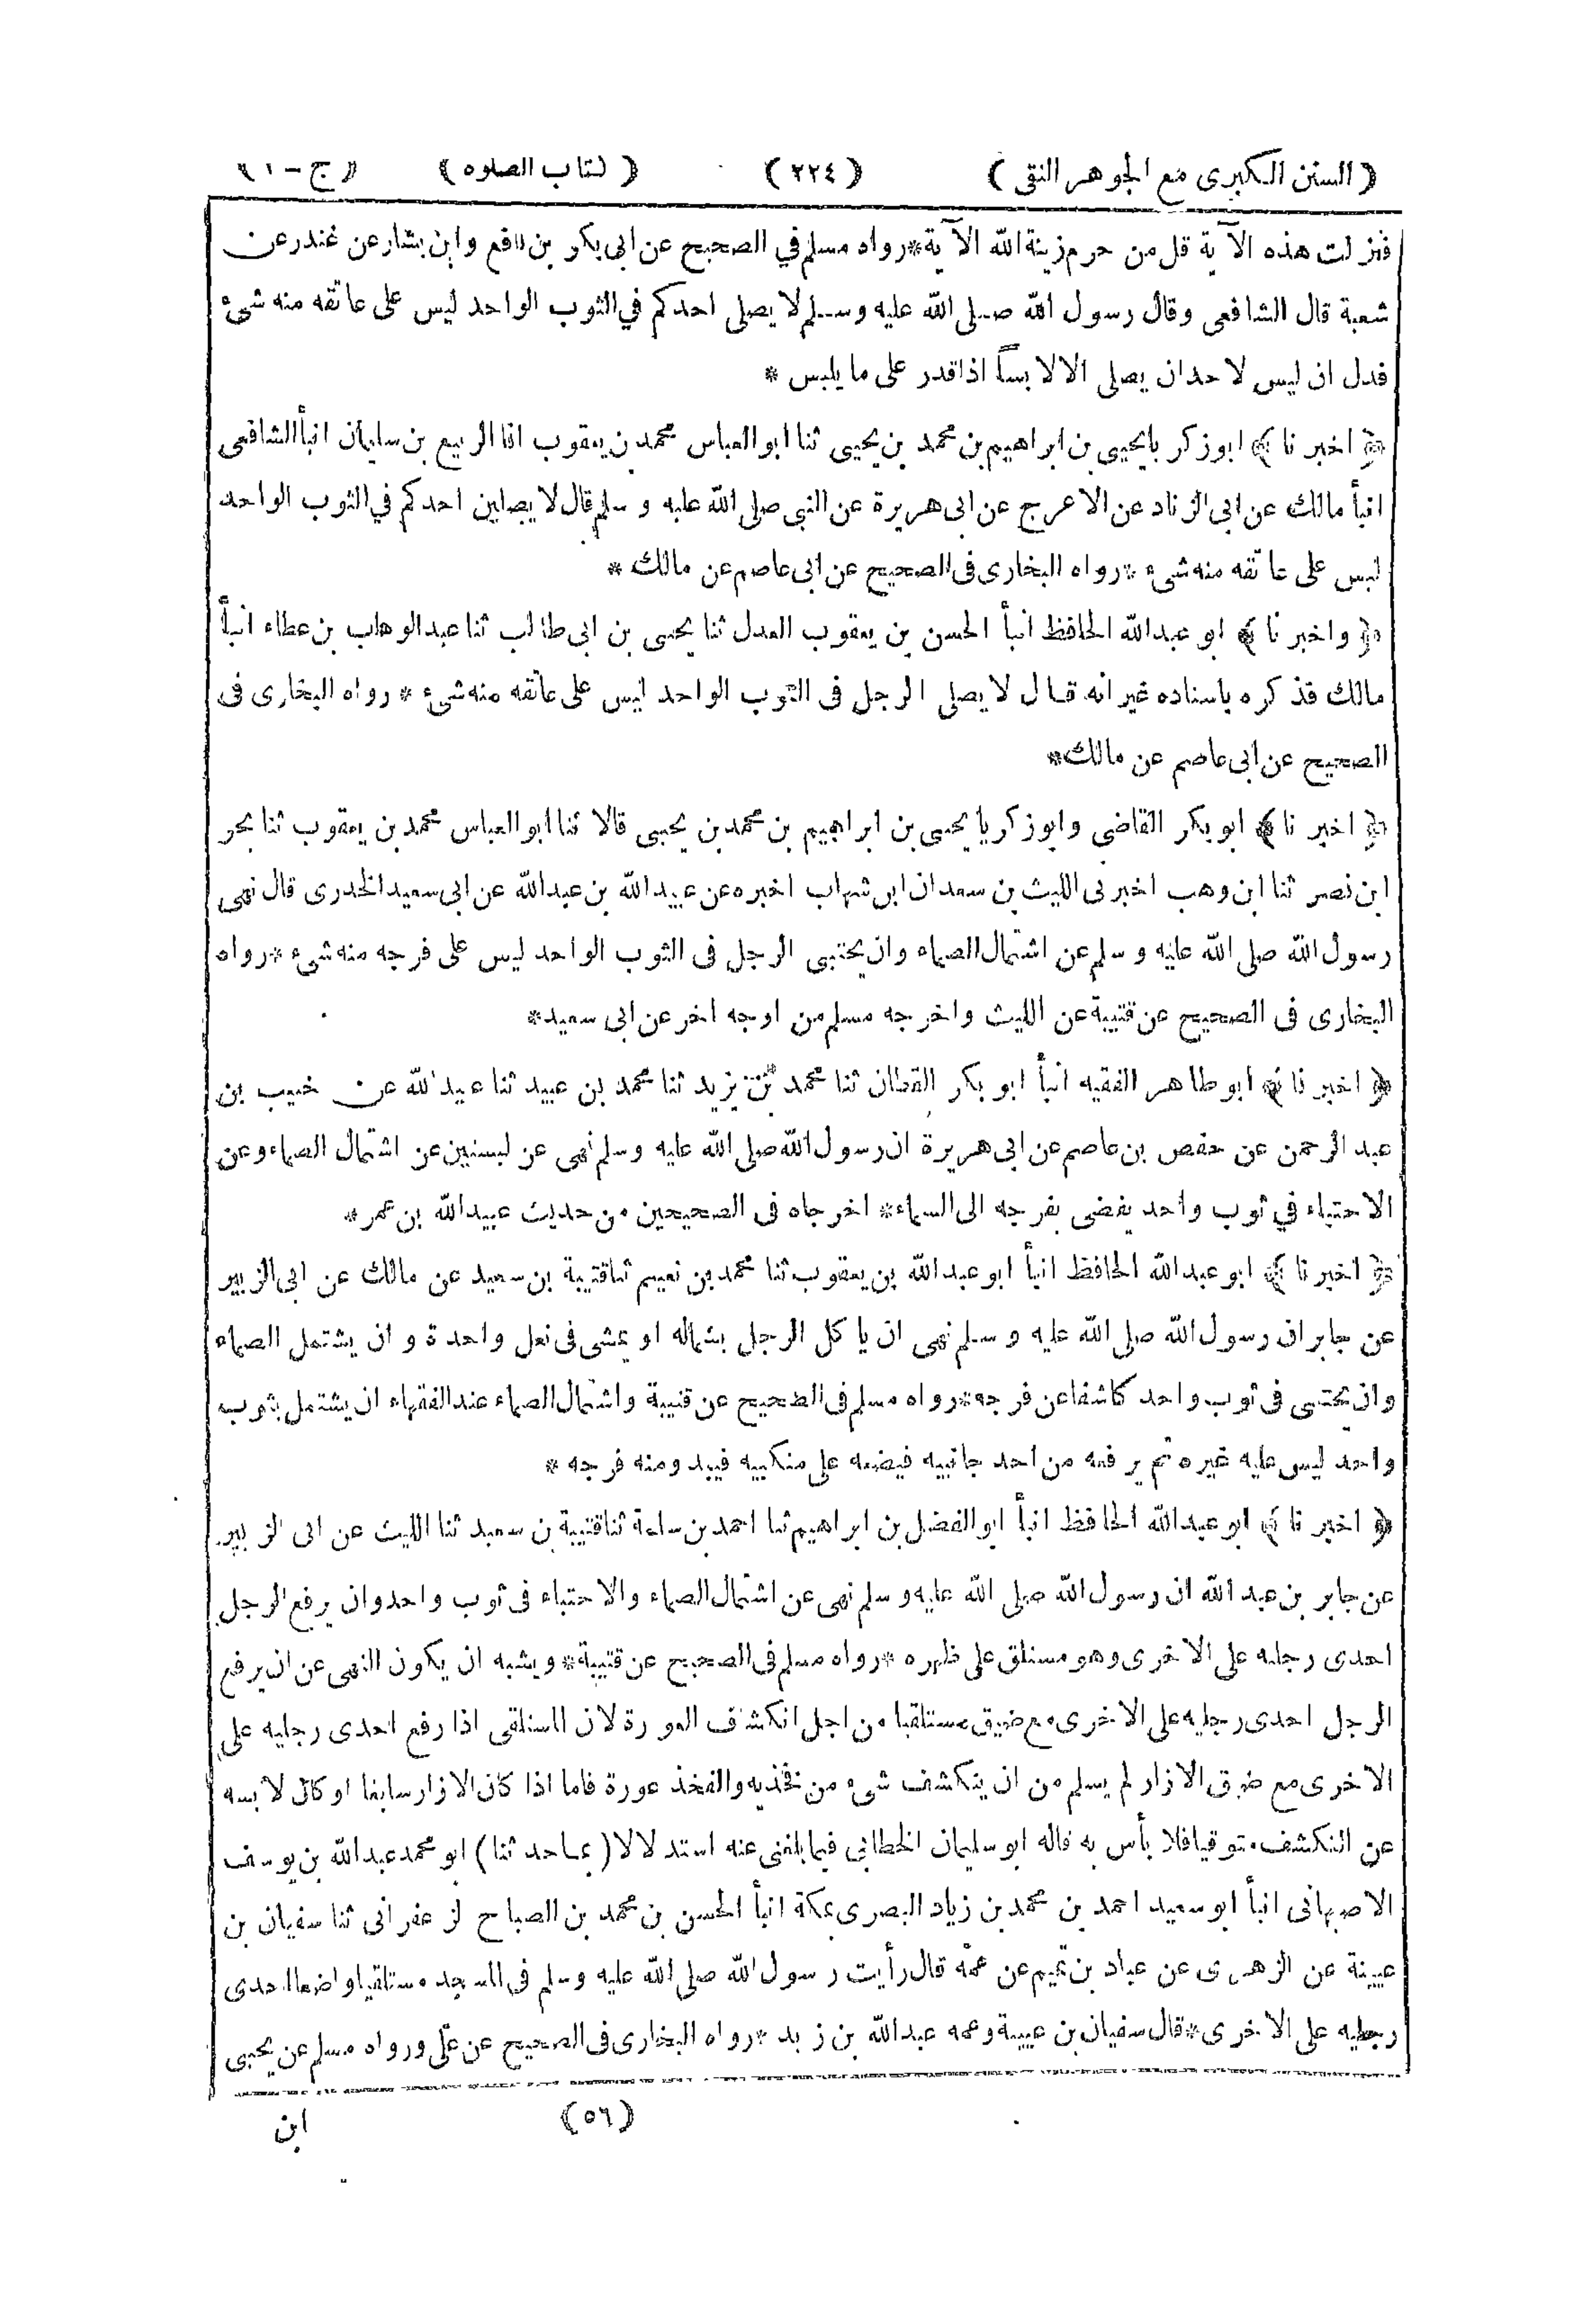 (السنن الكبرى مع الجوهر النقى) (٢٢٤) (كتاب الصلوه) (ج-١)
فنزلت هذه الآية قل من حرم زينة الله الآية*رواه مسلم في الصحيح عن ابى بكر بن نافع وابن بشار عن غندر عن
شعبة قال الشافعى وقال رسول الله صلى الله عليه وسلم لا يصلى احدكم في الثوب الواحد ليس على عاتقه منه شئ
فدل ان ليس لاحد ان يصلى الا لابسا اذا قدر على ما يلبس *
﴿ اخبرنا ﴾ ابو زكريا يحيى بن ابراهيم بن محمد بن يحيى ثنا ابو العباس محمد بن يعقوب انا الربيع بن سليمان انبأ الشافعى
انبأ مالك عن ابى الزناد عن الاعرج عن ابى هريرة عن النبى صلى الله عليه وسلم قال لا يصلين احدكم في الثوب الواحد
ليس على عاتقه منه شىء *رواه البخارى فى الصحيح عن ابى عاصم عن مالك *
﴿ واخبرنا ﴾ ابو عبدالله الحافظ انبأ الحسن بن يعقوب العدل ثنا يحيى بن ابى طالب ثنا عبد الوهاب بن عطاء انبأ
مالك فذكره باسناده غير انه قال لا يصلى الرجل فى الثوب الواحد ليس على عاتقه منه شىء * رواه البخارى فى
الصحيح عن ابى عاصم عن مالك*
﴿ اخبرنا ﴾ ابو بكر القاضى وابو زكريا يحيى بن ابراهيم بن محمد بن يحيى قالا ثنا ابو العباس محمد بن يعقوب ثنا بحر
ابن نصر ثنا ابن وهب اخبرنى الليث بن سعد ان ابن شهاب اخبره عن عبيد الله بن عبدالله عن ابى سعيد الخدرى قال نهى
رسول الله صلى الله عليه وسلم عن اشتمال الصماء وان يحتبى الرجل فى الثوب الواحد ليس على فرجه منه شىء *رواه
البخارى فى الصحيح عن قتيبة عن الليث واخرجه مسلم من اوجه اخر عن ابى سعيد*
﴿ اخبرنا ﴾ ابو طاهر الفقيه انبأ ابو بكر القطان ثنا محمد بن يزيد ثنا محمد بن عبيد ثنا عبيد الله عن خبيب بن
عبد الرحمن عن حفص بن عاصم عن ابى هريرة ان رسول الله صلى الله عليه وسلم نهى عن لبستين عن اشتمال الصماء وعن
الاحتباء في ثوب واحد يفضى بفرجه الى السماء* اخرجاه فى الصحيحين من حديث عبيد الله بن عمر*
﴿ اخبرنا ﴾ ابو عبدالله الحافظ انبأ ابو عبدالله بن يعقوب ثنا محمد بن نعيم ثنا قتيبة بن سعيد عن مالك عن ابى الزبير
عن جابر ان رسول الله صلى الله عليه وسلم نهى ان ياكل الرجل بشماله او يمشى فى نعل واحدة و ان يشتمل الصماء
وان يحتبى فى ثوب واحد كاشفا عن فرجه*رواه مسلم فى الصحيح عن قتيبة واشتمال الصماء عند الفقهاء ان يشتمل بثوب
واحد ليس عليه غيره ثم يرفعه من احد جانبيه فيضعه على منكبيه فيبدو منه فرجه *
﴿ اخبرنا ﴾ ابو عبدالله الحافظ انبأ ابو الفضل بن ابراهيم ثنا احمد بن سلمة ثنا قتيبة بن سعيد ثنا الليث عن ابى الزبير
عن جابر بن عبد الله ان رسول الله صلى الله عليه وسلم نهى عن اشتمال الصماء والاحتباء فى ثوب واحد وان يرفع الرجل
احدى رجليه على الاخرى وهو مستلق على ظهره *رواه مسلم فى الصحيح عن قتيبة* ويشبه ان يكون النهى عن ان يرفع
الرجل احدى رجليه على الاخرى مع ضيق مستلقيا من اجل انكشاف العورة لان المستلقى اذا رفع احدى رجليه على
الاخرى مع ضيق الازار لم يسلم من ان ينكشف شىء من فخذيه والفخذ عورة فاما اذا كان الازار سابغا او كان لابسه
عن التكشف متوقيا فلا بأس به قاله ابو سليمان الخطابى فيما بلغنى عنه استدلالا (بما حدثنا) ابو محمد عبدالله بن يوسف
الاصبهانى انبأ ابو سعيد احمد بن محمد بن زياد البصرى بمكة انبأ الحسن بن محمد بن الصباح الزعفرانى ثنا سفيان بن
عيينة عن الزهرى عن عباد بن تميم عن عمه قال رأيت رسول الله صلى الله عليه وسلم فى المسجد مستلقيا واضعا احدى
رجليه على الاخرى*قال سفيان بن عيينة وعمه عبدالله بن زيد *رواه البخارى فى الصحيح عن على ورواه مسلم عن يحيى
(٥٦) ابن